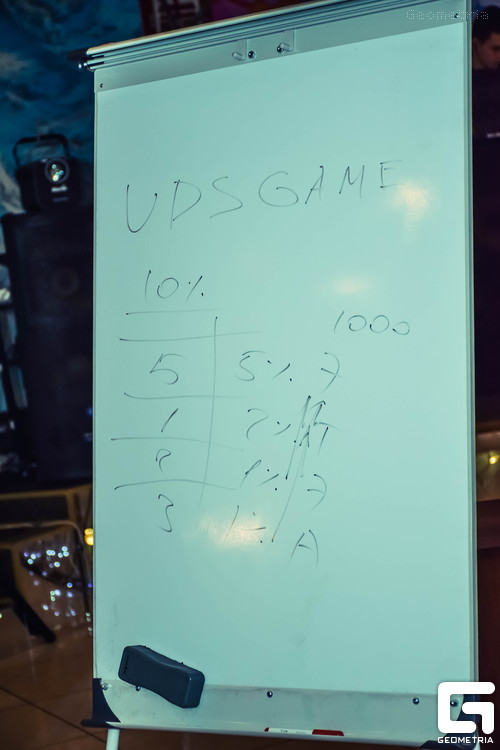 Geometria
UDS GAME
10%
1000
5 5%
1 2%
2 1%
3 1%
A
GEOMETRIA